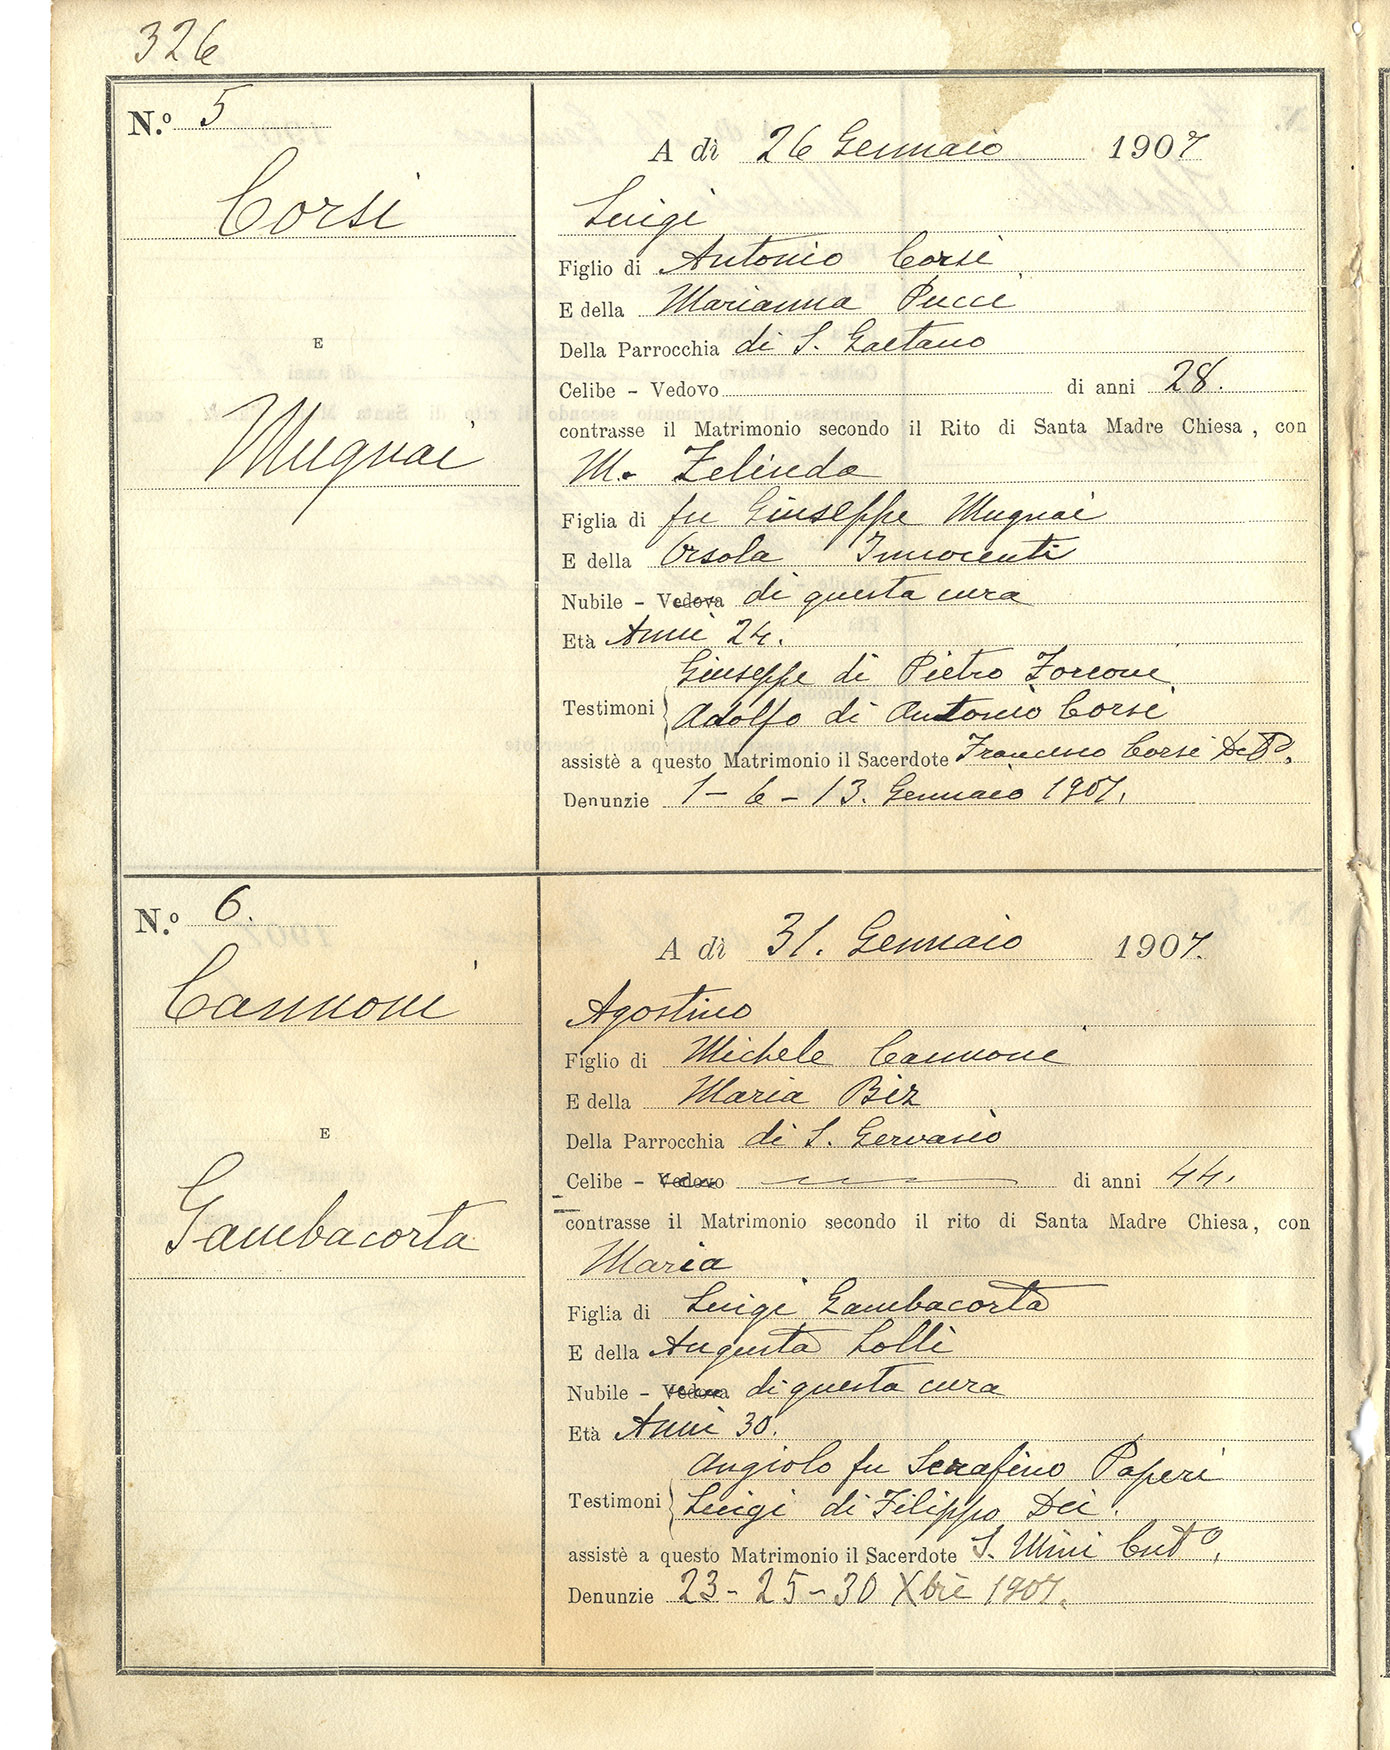 326
N.º 5
Corsi
E
Mugnai
A dì 26 Gennaio 1907
Luigi
Figlio di Antonio Corsi
E della Marianna Pucci
Della Parrocchia di S. Gaetano
Celibe - Vedovo di anni 28.
contrasse il Matrimonio secondo il Rito di Santa Madre Chiesa, con
M.a Zelinda
Figlia di fu Giuseppe Mugnai
E della Orsola Innocenti
Nubile - Vedova di questa cura
Età Anni 24.
Giuseppe di Pietro Forconi
Testimoni Adolfo di Antonio Corsi
assistè a questo Matrimonio il Sacerdote Francesco Corsi
Denunzie 1 - 6 - 13. Gennaio 1907.
N.º 6.
Cannoni
E
Gambacorta
A dì 31. Gennaio 1907.
Agostino
Figlio di Michele Cannoni
E della Maria Biz
Della Parrocchia di S. Gervasio
Celibe - Vedovo di anni 44.
contrasse il Matrimonio secondo il rito di Santa Madre Chiesa, con
Maria
Figlia di Luigi Gambacorta
E della Augusta Lolli
Nubile - Vedova di questa cura
Età Anni 30.
Angiolo fu Serafino Paperi
Testimoni Luigi di Filippo Dei.
assistè a questo Matrimonio il Sacerdote S. Mini
Denunzie 23 - 25 - 30 Xbre 1907.